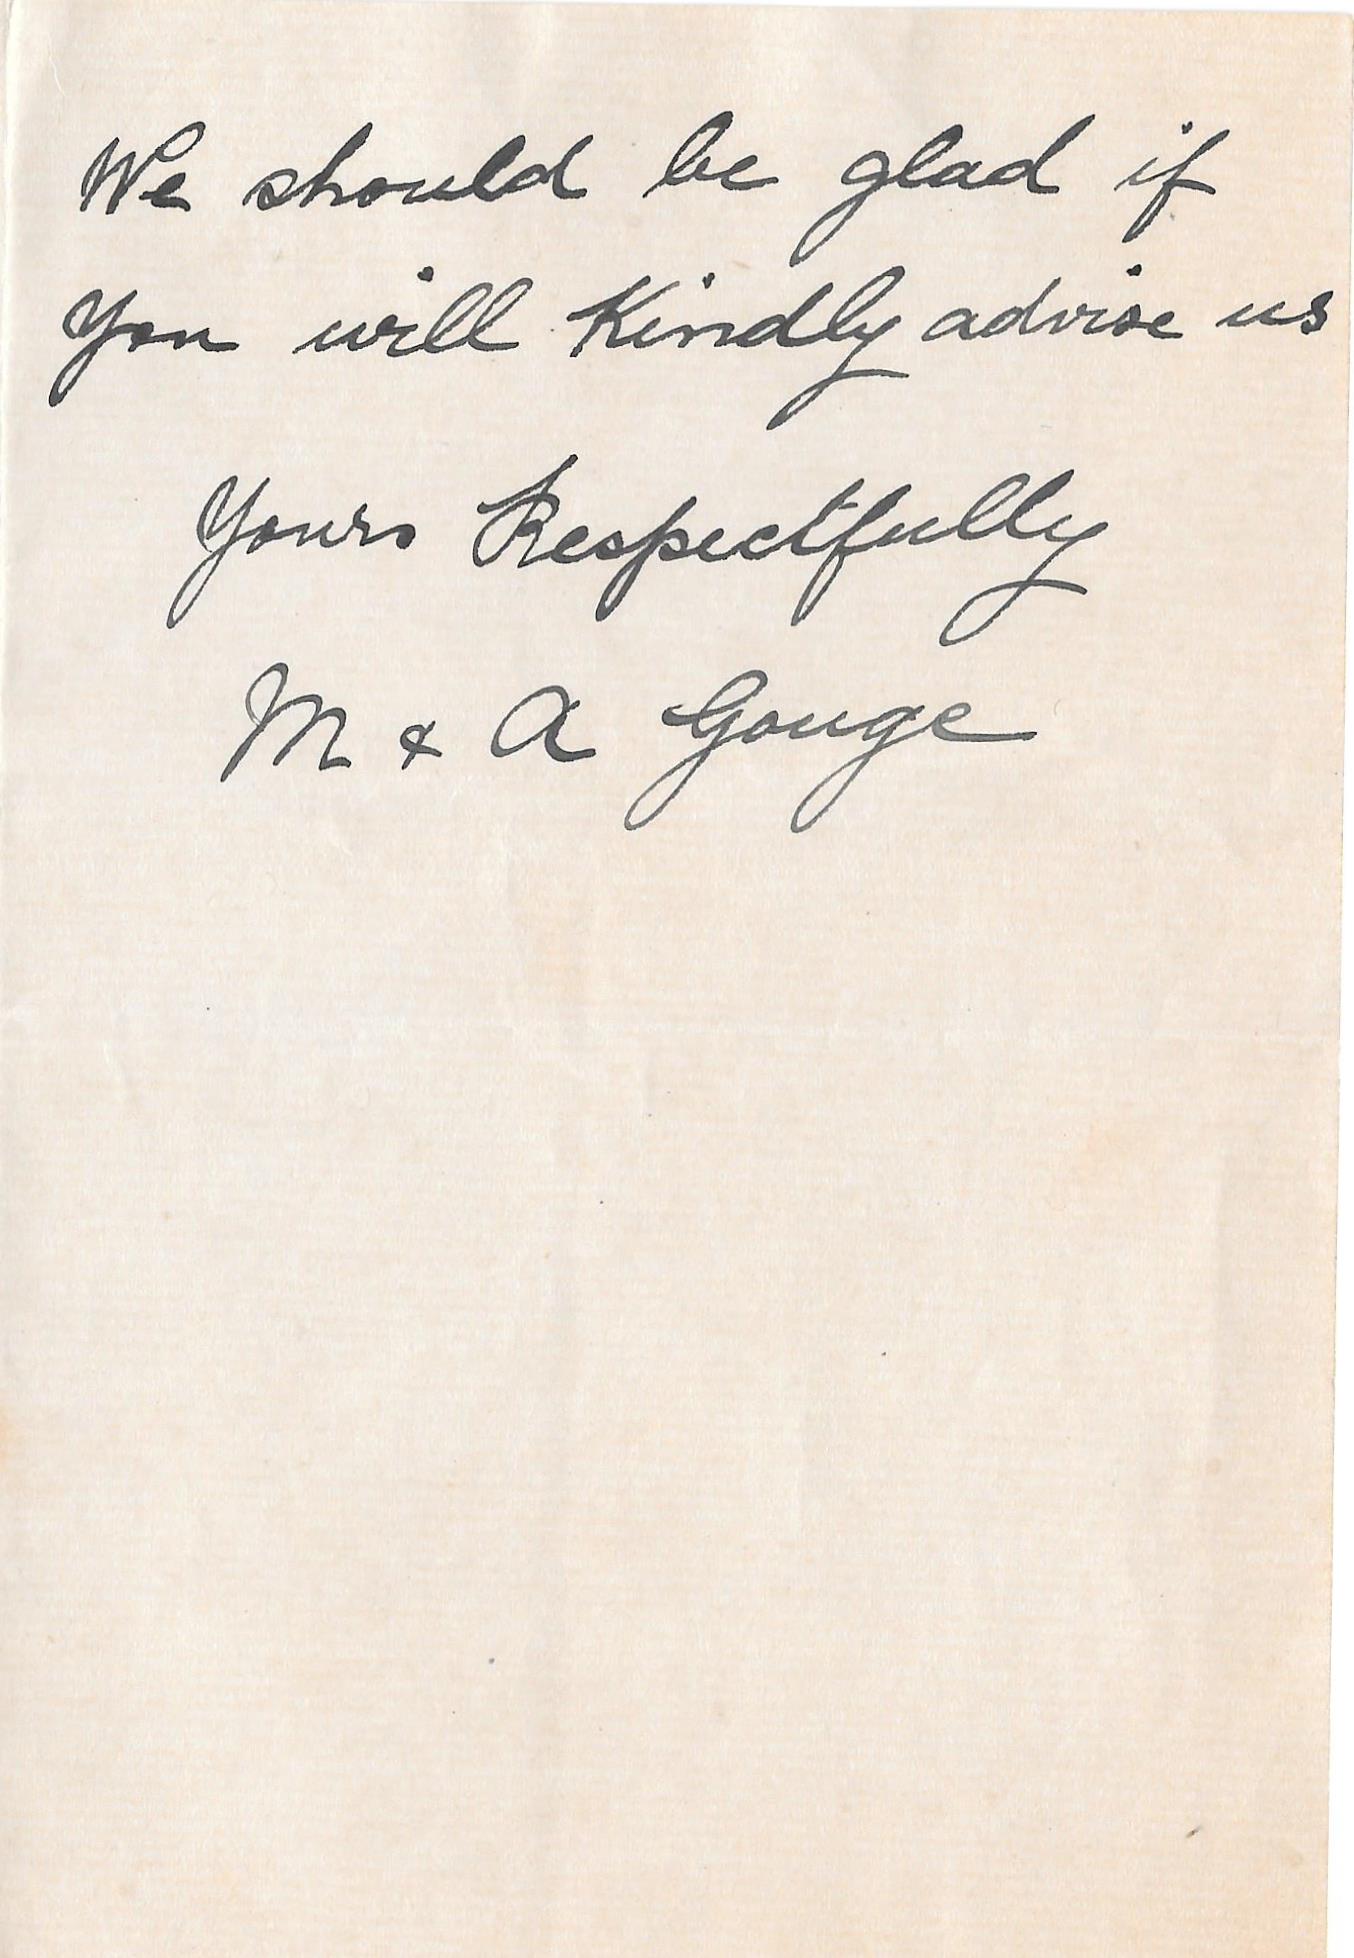 We should be glad if
you will Kindly advise us
Yours Respectfully
M & A Gouge